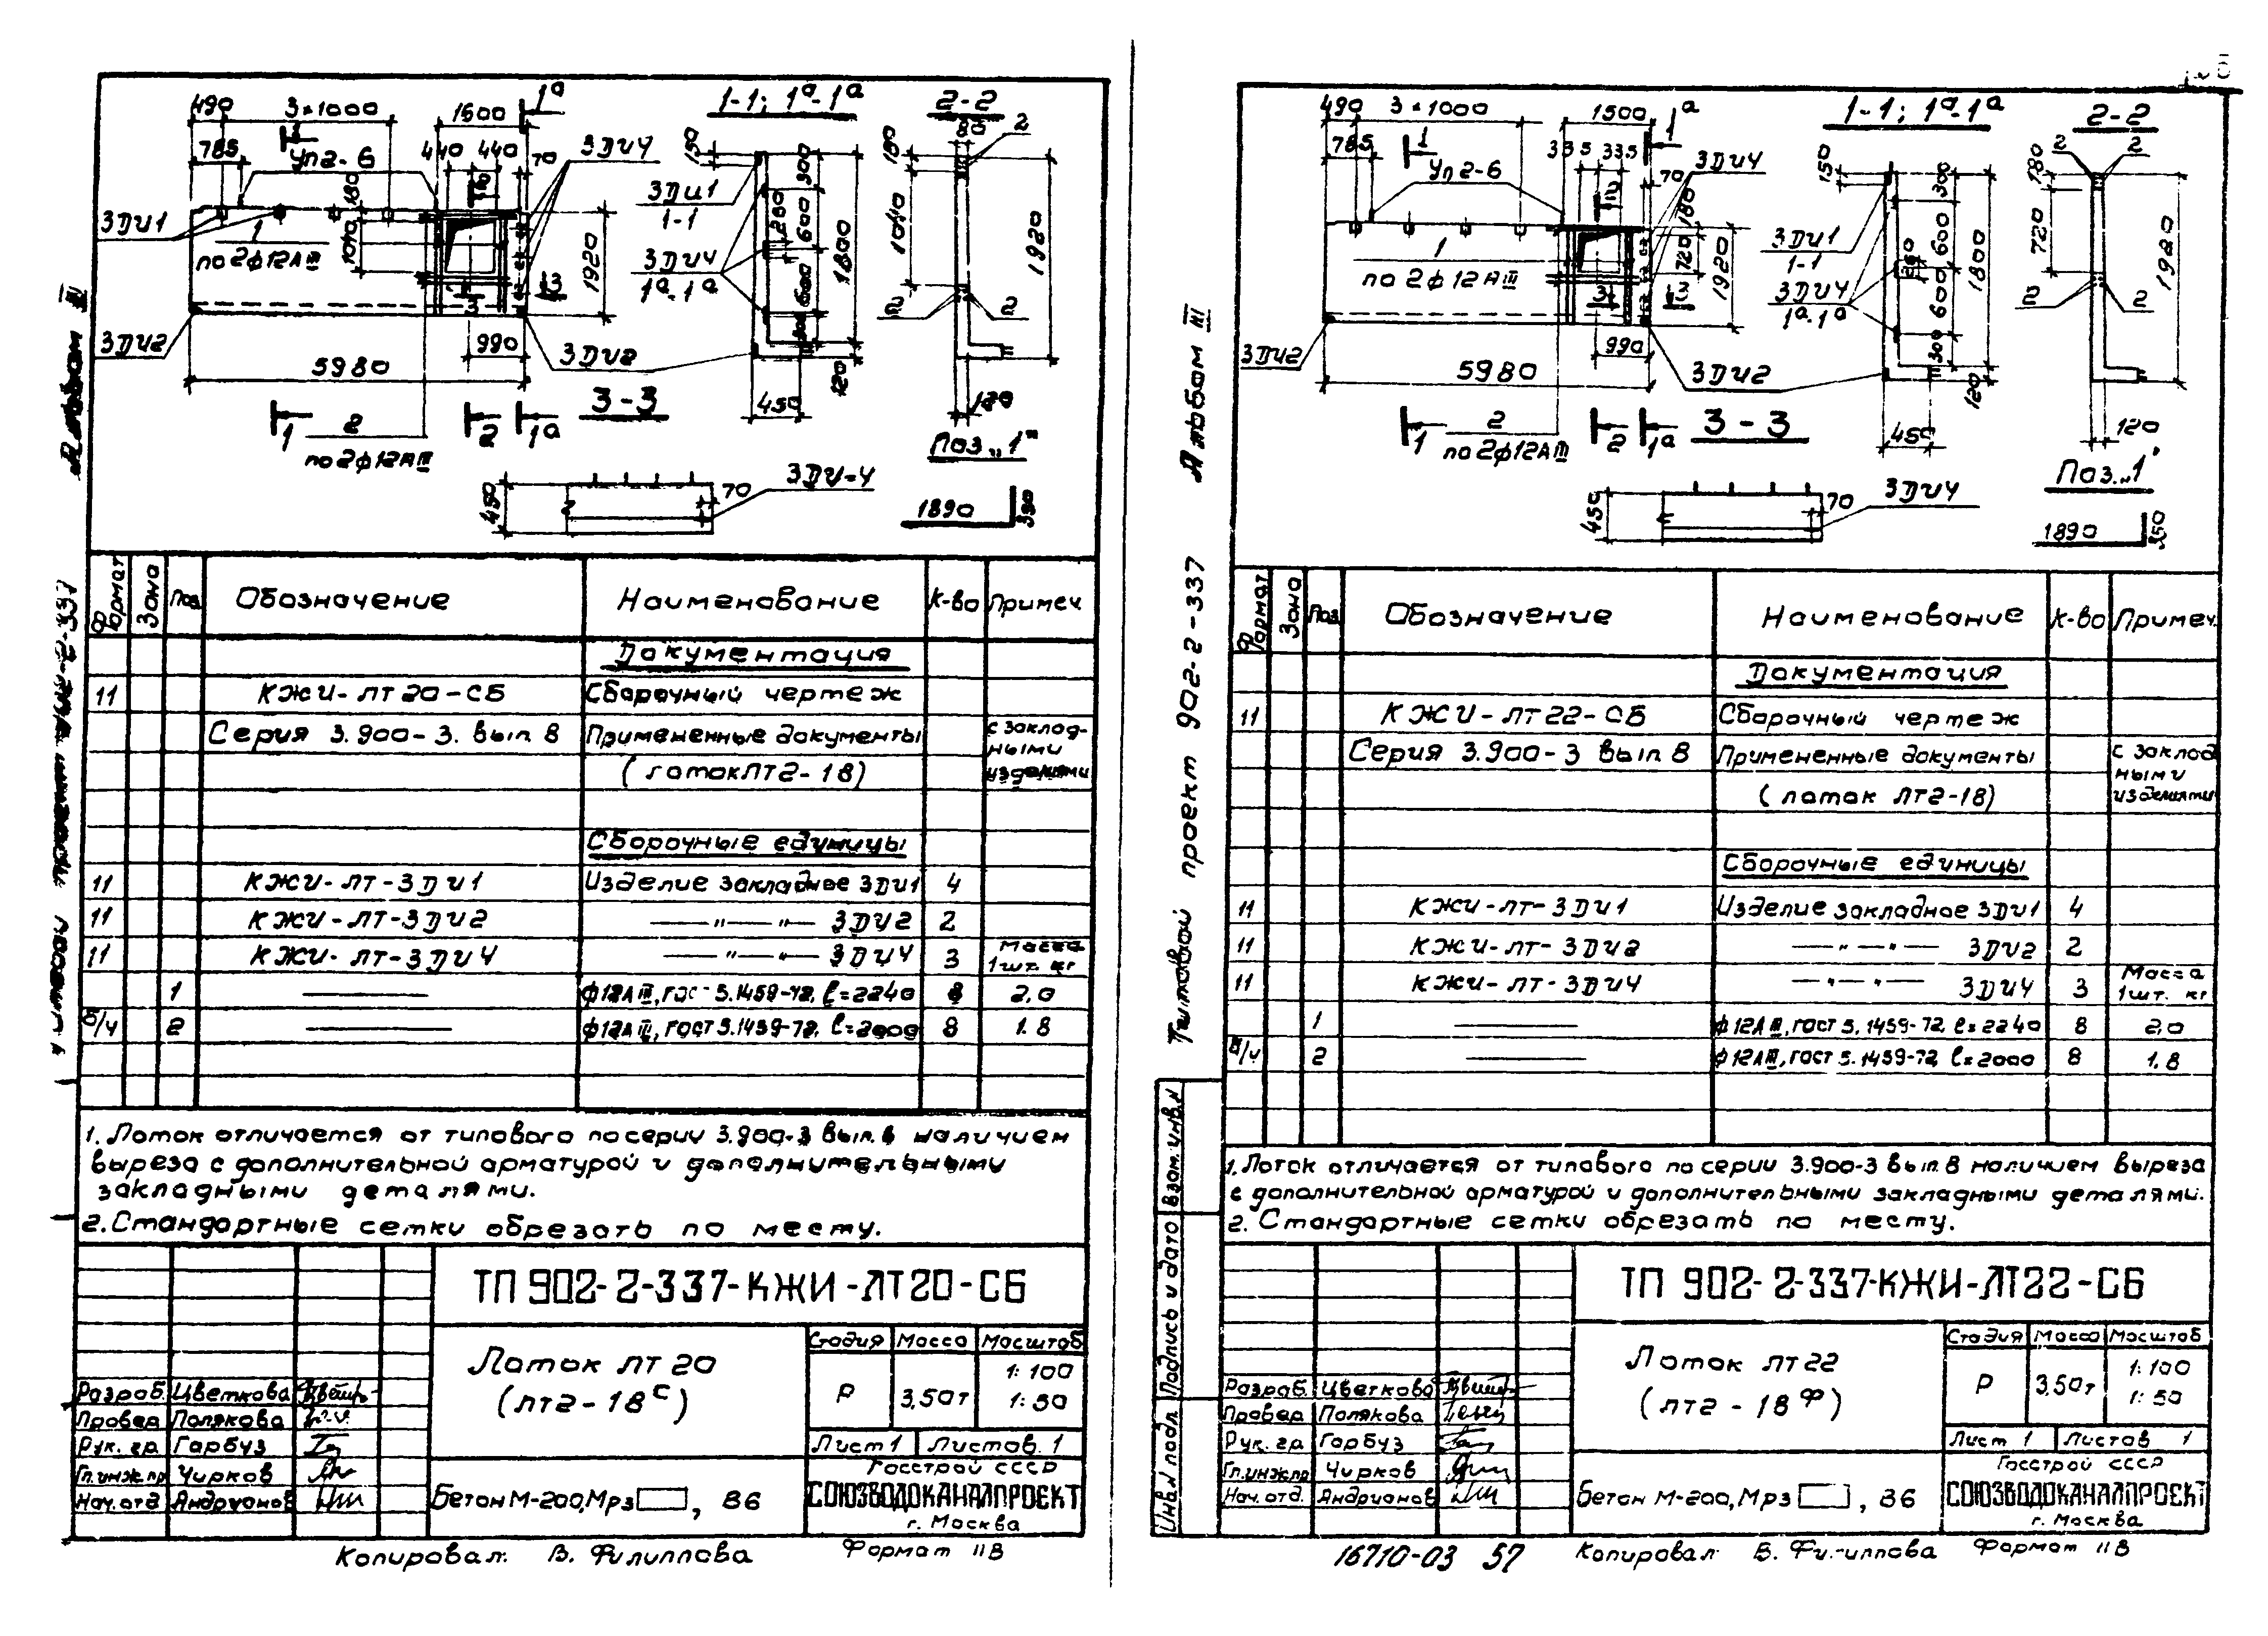 490 3×1000 1500 1ª 1-1; 1ª-1ª 2-2
785 1 Уп2-6 440 440 70 ЗДИ4 150 300 180 80 2
180 2
ЗДИ1 1 1010 1920 ЗДИ1 1-1 280 600 1800 1040 1920
по 2ф12АIII 3 3 ЗДИ4 1ª-1ª 600 2 2
ЗДИ2 990 ЗДИ2 300 120
5980 3-3 450 120
1 2 2 1ª
по 2ф12АIII
Поз. „1"
450 70 ЗДИ-4
1890 350
Формат Зона Поз. Обозначение Наименование К-во Примеч.
Документация
11 КЖИ-ЛТ20-СБ Сборочный чертеж
Серия 3.900-3. вып. 8 Примененные документы с заклад-
ными
(лоток ЛТ2-18) изделиями
Сборочные единицы
11 КЖИ-ЛТ-ЗДИ1 Изделие закладное ЗДИ1 4
11 КЖИ-ЛТ-ЗДИ2 —"—"— ЗДИ2 2
11 КЖИ-ЛТ-ЗДИ4 —"—"— ЗДИ4 3 Масса 1шт. кг
1 ф12АIII, ГОСТ 5.1459-72, l=2240 8 2,0
б/ч 2 ф12АIII, ГОСТ 5.1459-72, l=2000 8 1.8
1. Лоток отличается от типового по серии 3.900-3 вып. 8 наличием
выреза с дополнительной арматурой и дополнительными
закладными деталями.
2. Стандартные сетки обрезать по месту.
ТП 902-2-337-КЖИ-ЛТ20-СБ
Лоток ЛТ20
(ЛТ2-18ᶜ)
Стадия Масса Масштаб
Р 3,50т 1:100
1:50
Лист 1 Листов. 1
Разраб. Цветкова
Провер Полякова
Рук. гр. Гарбуз
Гл.инж.пр Чирков
Нач. отд Андрианов
Бетон М-200, Мрз , В6
Госстрой СССР
СОЮЗВОДОКАНАЛПРОЕКТ
г. Москва
Копировал: В. Филиппова Формат 11В
Альбом III
Типовой проект 902-2-337
490 3×1000 1500 1ª 1-1; 1ª-1ª 2-2
785 1 335 335 ЗДИ4 150 300 180 2 2
Уп2-6 2 70 180
1 720 1920 ЗДИ1 1-1 600 1800 720 1980
по 2ф12АIII 3 3 ЗДИ4 1ª-1ª 600 2 2
ЗДИ2 990 ЗДИ2 300 120
5980 450 120
1 2 2 1ª 3-3
по 2ф12АIII
Поз. „1"
450 70 ЗДИ4
1890 350
Формат Зона Поз. Обозначение Наименование К-во Примеч.
Документация
11 КЖИ-ЛТ22-СБ Сборочный чертеж
Серия 3.900-3 вып. 8 Примененные документы с заклад
ными
(лоток ЛТ2-18) изделиями
Сборочные единицы
11 КЖИ-ЛТ-ЗДИ1 Изделие закладное ЗДИ1 4
11 КЖИ-ЛТ-ЗДИ2 —"—"— ЗДИ2 2
11 КЖИ-ЛТ-ЗДИ4 —"—"— ЗДИ4 3 Масса 1шт. кг
1 ф12АIII, ГОСТ 5.1459-72, l=2240 8 2,0
б/ч 2 ф12АIII, ГОСТ 5.1459-72, l=2000 8 1.8
1. Лоток отличается от типового по серии 3.900-3 вып. 8 наличием выреза
с дополнительной арматурой и дополнительными закладными деталями.
2. Стандартные сетки обрезать по месту.
ТП 902-2-337-КЖИ-ЛТ22-СБ
Лоток ЛТ22
(ЛТ2-18ᶲ)
Стадия Масса Масштаб
Р 3,50т 1:100
1:50
Лист 1 Листов 1
Разраб. Цветкова
Провер Полякова
Рук. гр. Гарбуз
Гл.инж.пр Чирков
Нач. отд. Андрианов
Бетон М-200, Мрз , В6
Госстрой СССР
СОЮЗВОДОКАНАЛПРОЕКТ
г. Москва
Инв.N подл. Подпись и дата Взам. инв.N
16710-03 57 Копировал: В. Филиппова Формат 11В